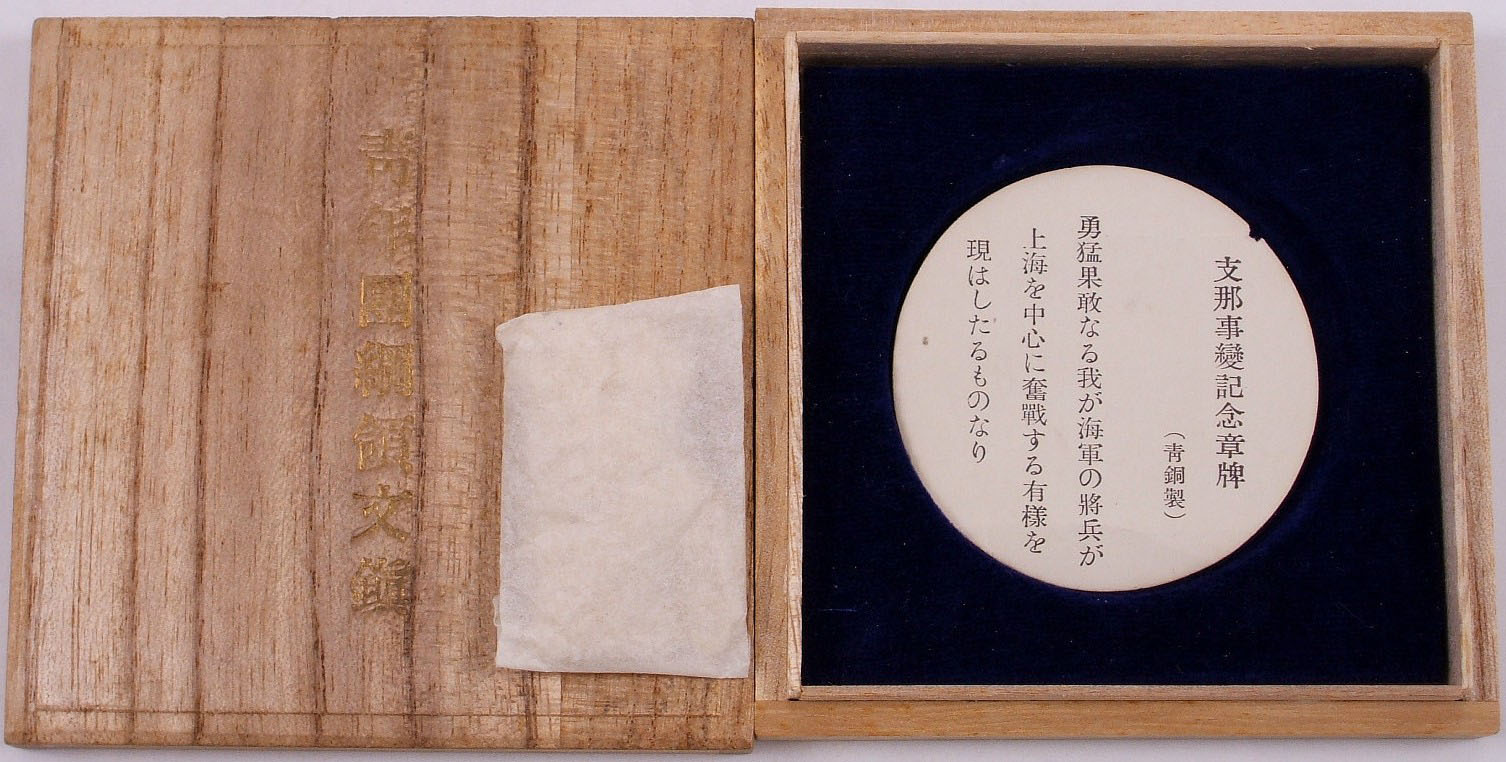 青年團綱領文鎮
支那事變記念章牌
（靑銅製）
勇猛果敢なる我が海軍の將兵が
上海を中心に奮戰する有樣を
現はしたるものなり